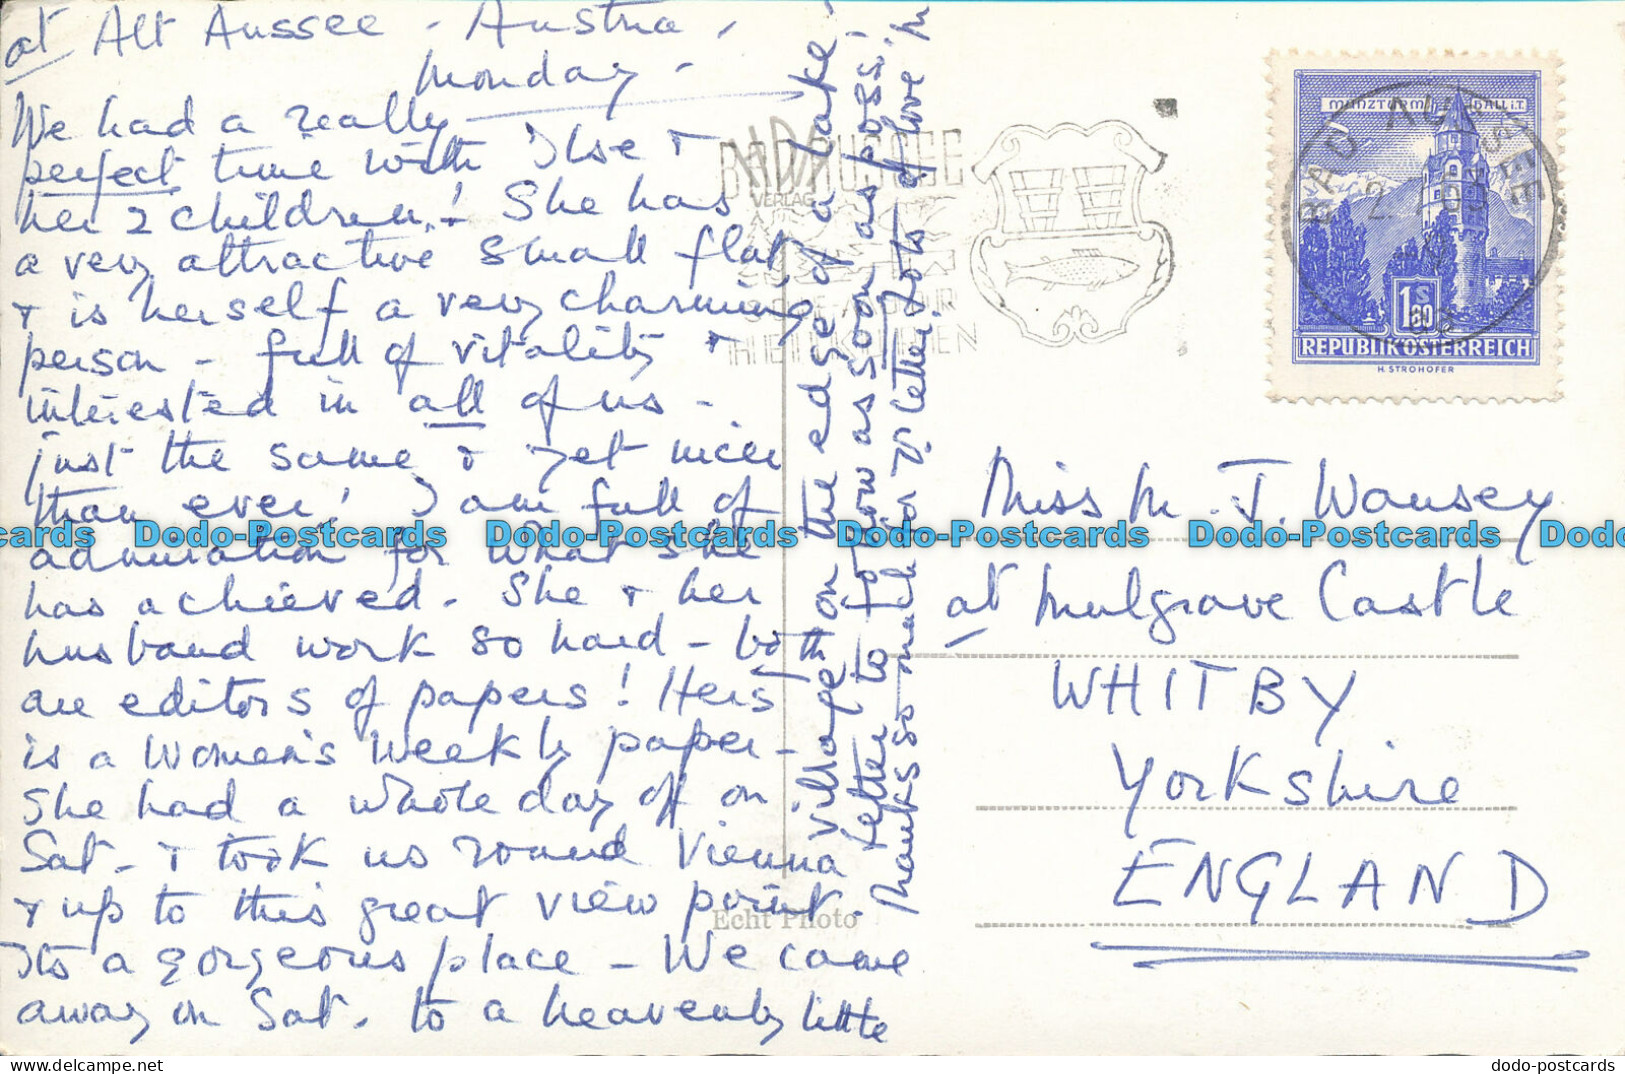 at Alt Aussee - Austria,
Monday -
We had a really
perfect time with Ilse &
her 2 children! She has
a very attractive small flat
& is herself a very charming
person - full of vitality &
interested in all of us -
just the same & yet nicer
than ever! I am full of
admiration for what she
has achieved. She & her
husband work so hard - both
are editors of papers! Hers
is a Women's Weekly paper -
She had a whole day off on
Sat. & took us round Vienna
& up to this great view point.
Its a gorgeous place - We came
away on Sat. to a heavenly little
village on the edge of a lake -
letter to follow as soon as poss:
Thanks so much for yr. letter. Lots of love M
Miss M. J. Wansey
at Mulgrave Castle
WHITBY
Yorkshire
ENGLAND
BAD AUSSEE
HEILKLIMA
VERLAG
Echt Photo
BAD AUSSEE
MÜNZTURM HALL i.T.
1 S 80
REPUBLIK ÖSTERREICH
H. STROHOFER
Dodo-Postcards Dodo-Postcards Dodo-Postcards Dodo-Postcards Dodo-Postcards Dodo
dodo-postcards